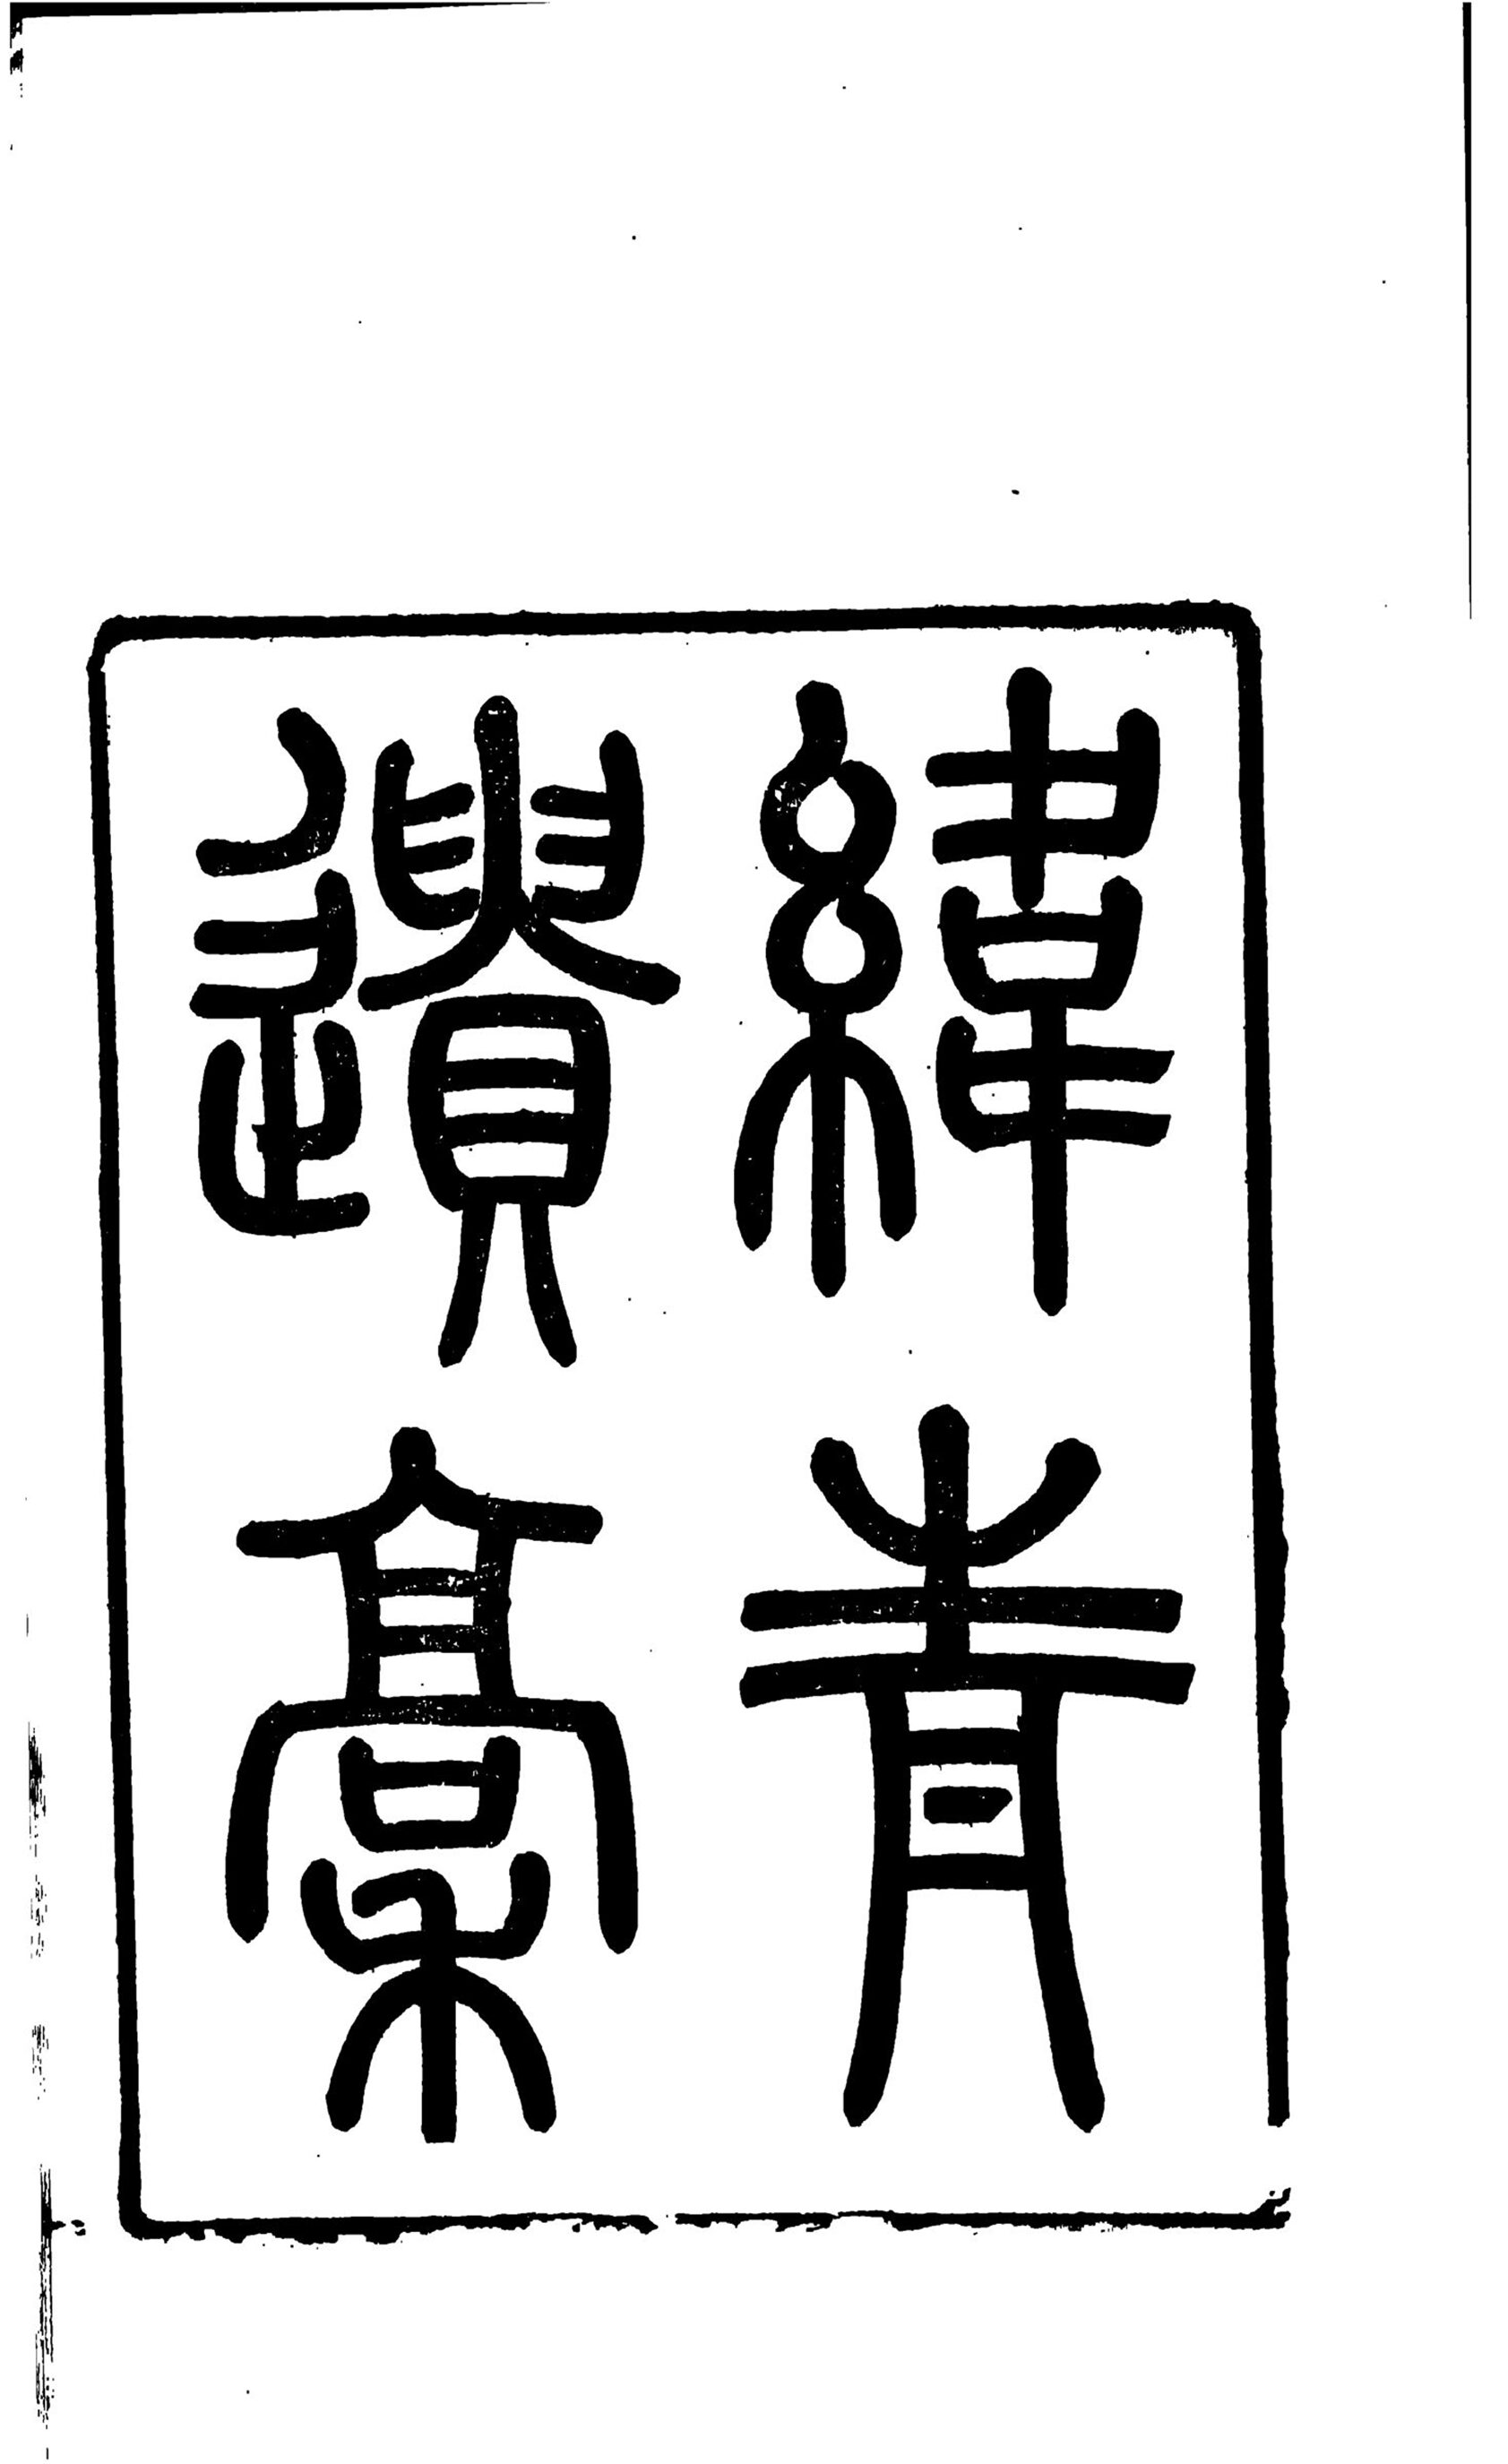 緯青
遺稾